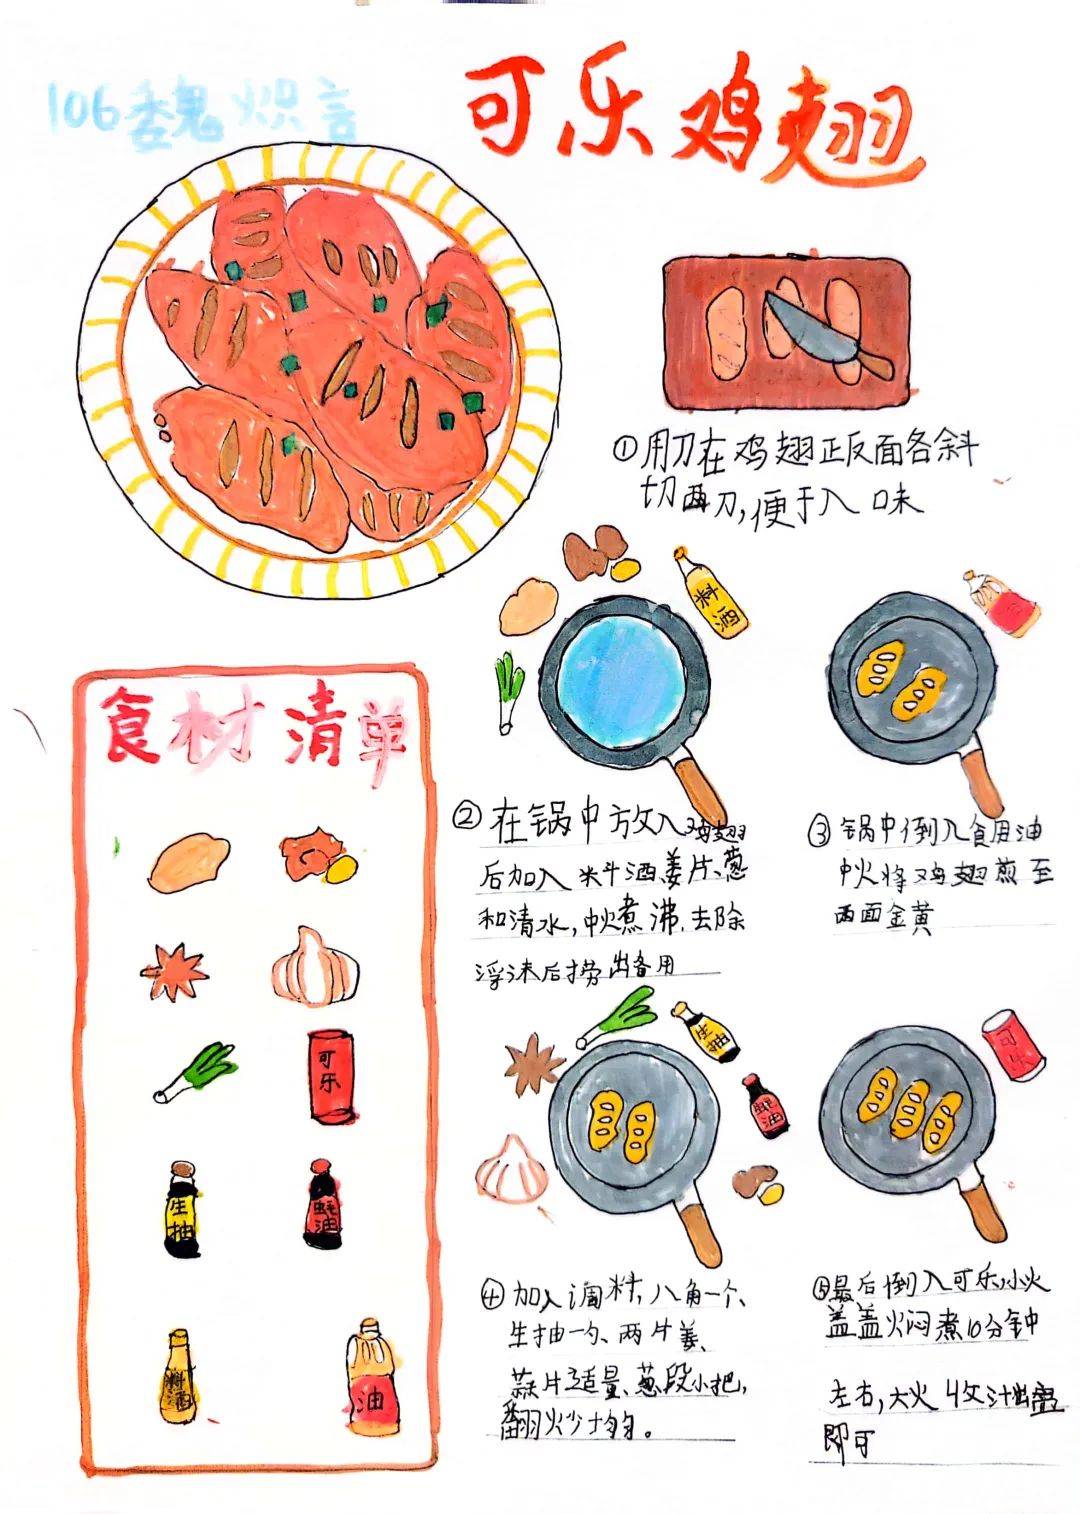 106魏炽言
可乐鸡翅
①用刀在鸡翅正反面各斜
切两刀,便于入味
料酒
②在锅中放入鸡翅
后加入料酒姜片、葱
和清水,中火煮沸,去除
浮沫后捞出备用
③锅中倒入食用油
中火将鸡翅煎至
两面金黄
生抽
蚝油
④加入调料,八角一个、
生抽一勺、两片姜、
蒜片适量、葱段小把,
翻火炒均匀。
可乐
⑤最后倒入可乐,小火
盖盖火焖煮10分钟
左右,大火收汁出盘
即可
食材清单
可乐
生抽
蚝油
料酒
油